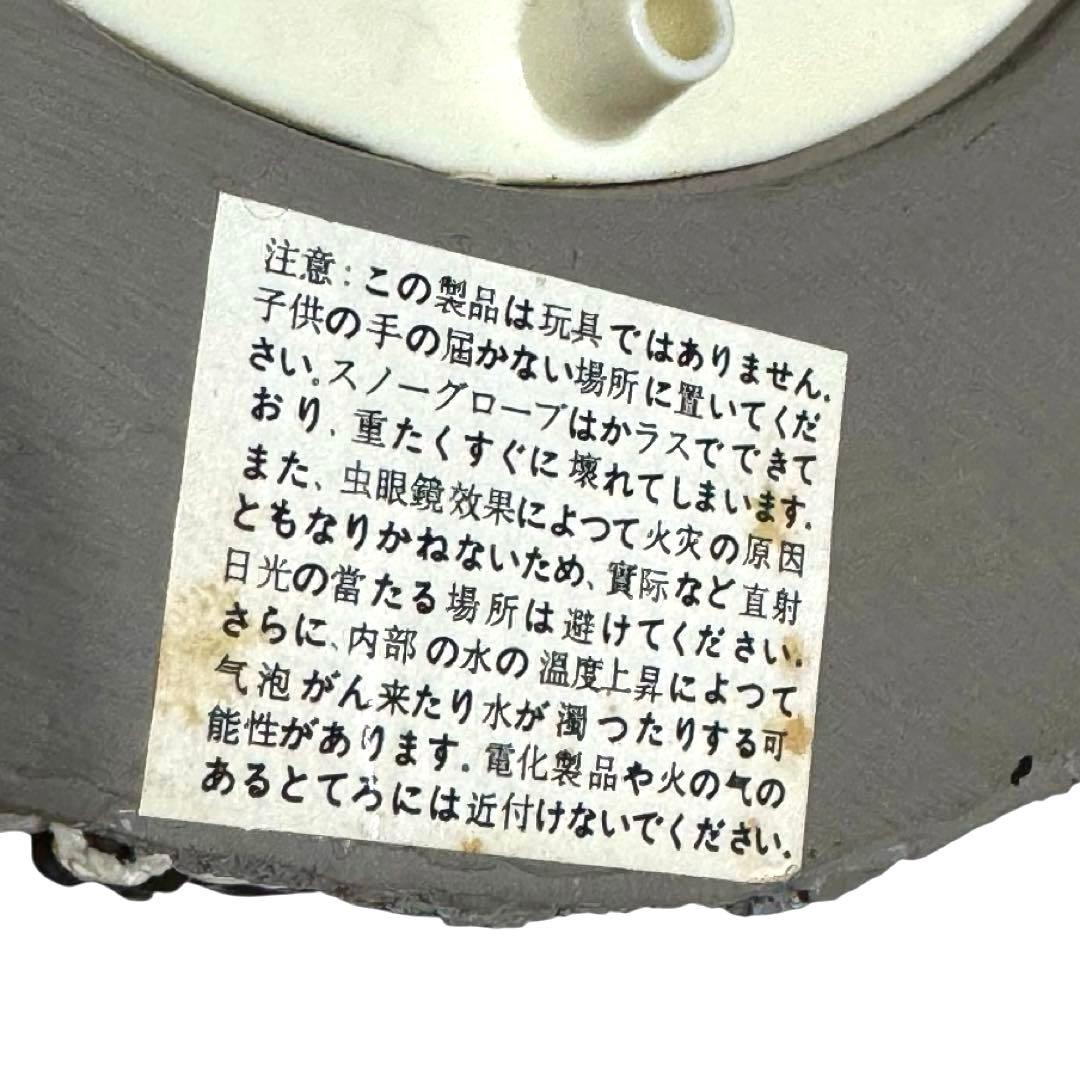 注意:この製品は玩具ではありません.
子供の手の届かない場所に置いてくだ
さい.スノーグローブはかラスでできて
おり、重たくすぐに壊れてしまいます.
また、虫眼鏡效果によつて火灾の原因
ともなりかねないため、實际など直射
日光の當たる場所は避けてください.
さらに、内部の水の温度上昇によつて
气泡がん来たり水が濁つたりする可
能性があります.電化製品や火の气の
あるとてろには近付けないでください.